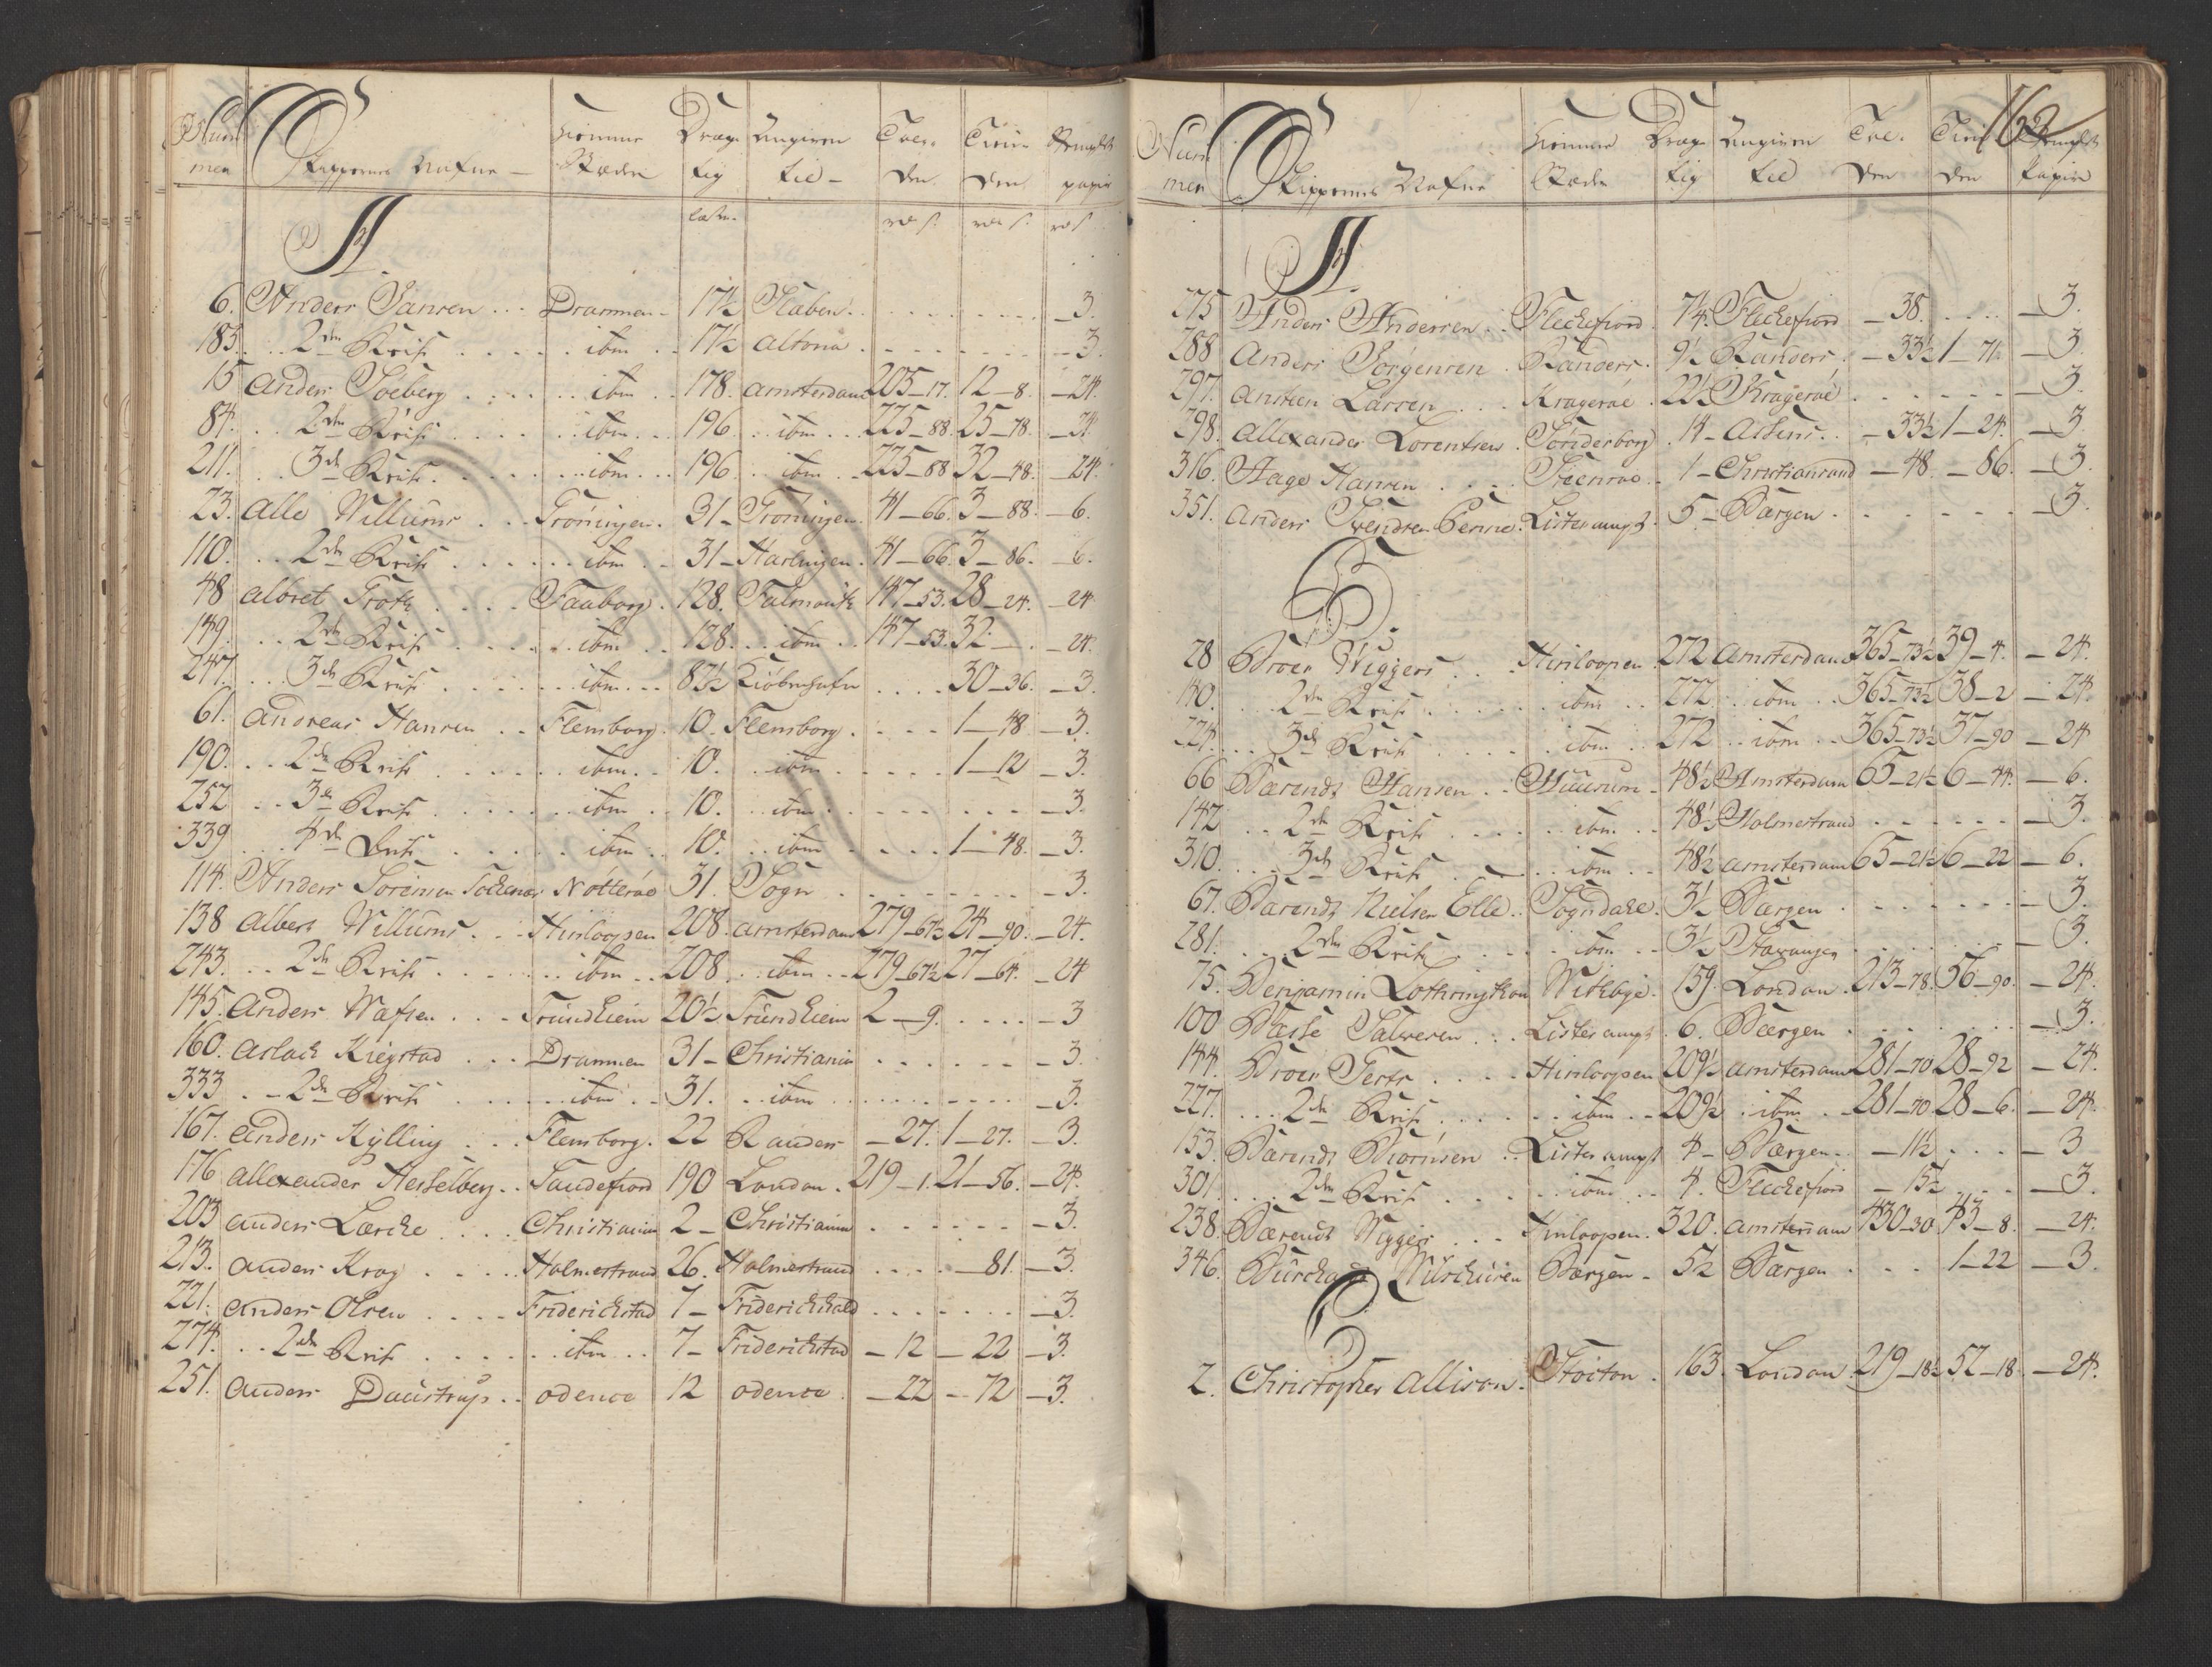 Num Skippernes Nafne Hiemme Dræg Angiven Tol Tien Stemplt
mer Stæder tig til den den papir
læster rdr s. rdr s. rd s
A
6. Anders Jansen Drammen 17½ Staben 3.
183. 2den Reise ibm 17½ Altona 3.
15 Anders Soeberg ibm 178. Amsterdam 205_17. 12_8. 24.
84. 2den Reise ibm 196. ibm 225_88. 25_78. 24
211. 3de Reise ibm 196 ibm 225_88 32_48. 24.
23. Alle Willums Groningen 31_ Groningen 41_66. 3_88. 6.
110. 2den Reise ibm 31_ Harlingen 41_66. 3_86. 6.
48 Albret Groth Faaborg 128. Falmouth 147_53. 28_24. 24
149. 2den Reise ibm 128. ibm 147_53. 32_ 24.
247. 3de Reise ibm 82½ Kiøbenhafn 30_36. 3.
61. Andreas Hansen Flensborg 10. Flensborg 1_48 3.
190. 2den Reise ibm 10. ibm 1_12 3.
252 3de Reise ibm 10. ibm 3.
339 4de Reise ibm 10. ibm 1_48. 3.
114. Anders Sørensen Nøtterøe 31. Sogn 3.
138 Albert Willums Hinloopen 208. Amsterdam 279_67½ 24_90. 24.
243. 2de Reise ibm 208 ibm 279_67½ 27_64. 24
145. Anders Wafsen Trundhiem 20½ Trundhiem 2_9. 3
160. Aslach Kiegstad Drammen 31_ Christiania 3.
333 2de Reise ibm 31. ibm 3.
167. Anders Kylling Flensborg. 22 Randers _27. 1_27. 3.
176 Allexander Hesselberg Sandefiord 190 London 219_1. 21_56. 24.
203 Anders Lærche Christiania 2_ Christiania 3.
213. Anders Krog Holmestrand 26. Holmestrand _81. 3.
221. Anders Olsen Friderichstad 7_ Friderichshald 3.
274. 2den Reise ibm 7_ Friderichstad _12 _22 3.
251. Anders Daustrup Odence 12 Odence _22 _72 3.
162
Num Skippernes Nafne Hiemme Dræg Angiven Tol Tien Stemplt
mer Stæder tig til den den Papir
A.
275 Anders Andersen Flechefiord 7¼. Flechefiord _38. 3.
288 Anders Jørgensen Randers 9½ Randers _33½ 1_71½ 3.
297. Ansteen Larsen Kragerøe 22½ Kragerøe 3.
298. Allexander Lorentsen Sønderborg 14_ Assens _33½ 1_24. 3.
316. Aage Hansen 1_ Christiansand _48. _86. 3.
351. Anders Svendsen Penne Lister ampt 5_ Bærgen 3.
B
28 Broer Wiggers Hinloopen 272 Amsterdam 365_73½ 39_4. 24.
140. 2den Reise ibm 272. ibm 365_73½ 38_2 24.
224. 3de Reise ibm 272 ibm 365_73½ 37_90 24
66 Bærendt Hansen Huurum 48½ Amsterdam 65_21½ 6_44. 6.
142 2den Reise ibm 48½ Holmestrand 3.
310. 3de Reise ibm 48½ Amsterdam 65_21½ 6_22 6.
67. Barendt Nielsen Elle Sogndale. 3½ Bærgen 3.
281. 2den Reise ibm 3½ Stavanger 3.
75. Benjamin Lothringthon Withbye 159. London 213_78. 56_90. 24.
100 Basse Salvesen Lister ampt 6. Bærgen 3.
144. Broer Gerts Hinloopen 209½ Amsterdam 281_70 28_92 24.
227. 2de Reise ibm 209½ ibm 281_70. 28_6. 24.
153. Bærendt Biørnsen Lister ampt 4_ Bærgen _11½ 3
301. 2den Reise ibm 4. Flechefiord _15½ 3.
238. Bærendt Wiggers Hinloopen 320. Amsterdam 430_30. 43_8. 24.
346. Burchard Bærgen 5½ Bærgen 1_22 3.
C
2. Christopher Allison Stocton 163. London 219_18½ 52_18. 24.